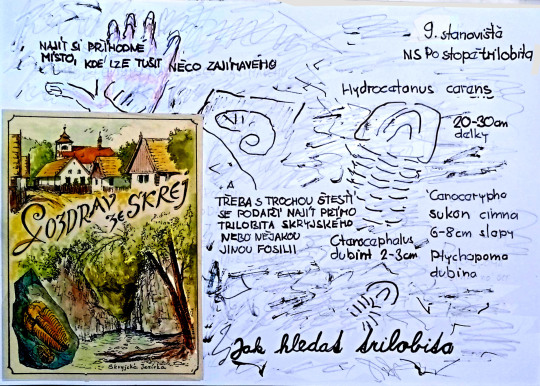 NAJÍT SI PŘÍHODNÉ
MÍSTO, KDE LZE TUŠIT NĚCO ZAJÍMAVÉHO
9. stanoviště
NS Po stopě trilobita
Hydrocatanus carens
20-30cm
délky
POZDRAV
ze SKREJ
TŘEBA S TROCHOU ŠTESTÍ
SE PODAŘÍ NAJÍT PŘÍMO
TRILOBITA SKRYJSKÉHO
NEBO NĚJAKOU
JINOU FOSILII
Ctarocephalus
dubint 2-3cm
Canocarypho
sukon cimna
6-8cm slapy
Ptychapoma
dubina
Skryjská Jezírka
Jak hledat trilobita